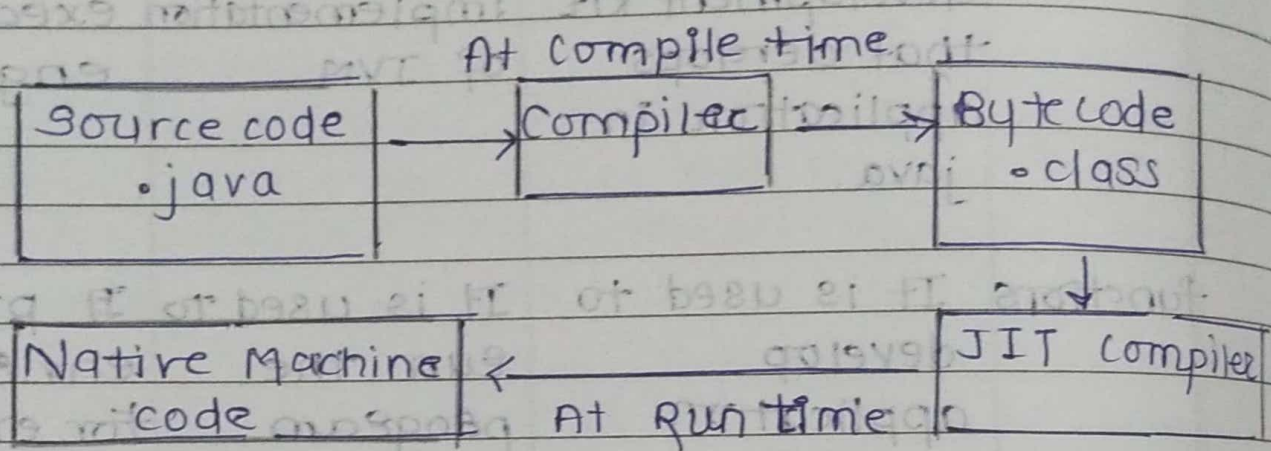 At compile time
Source code
.java
Compiler
Bytecode
.class
Native Machine
code
JIT compiler
At Run time